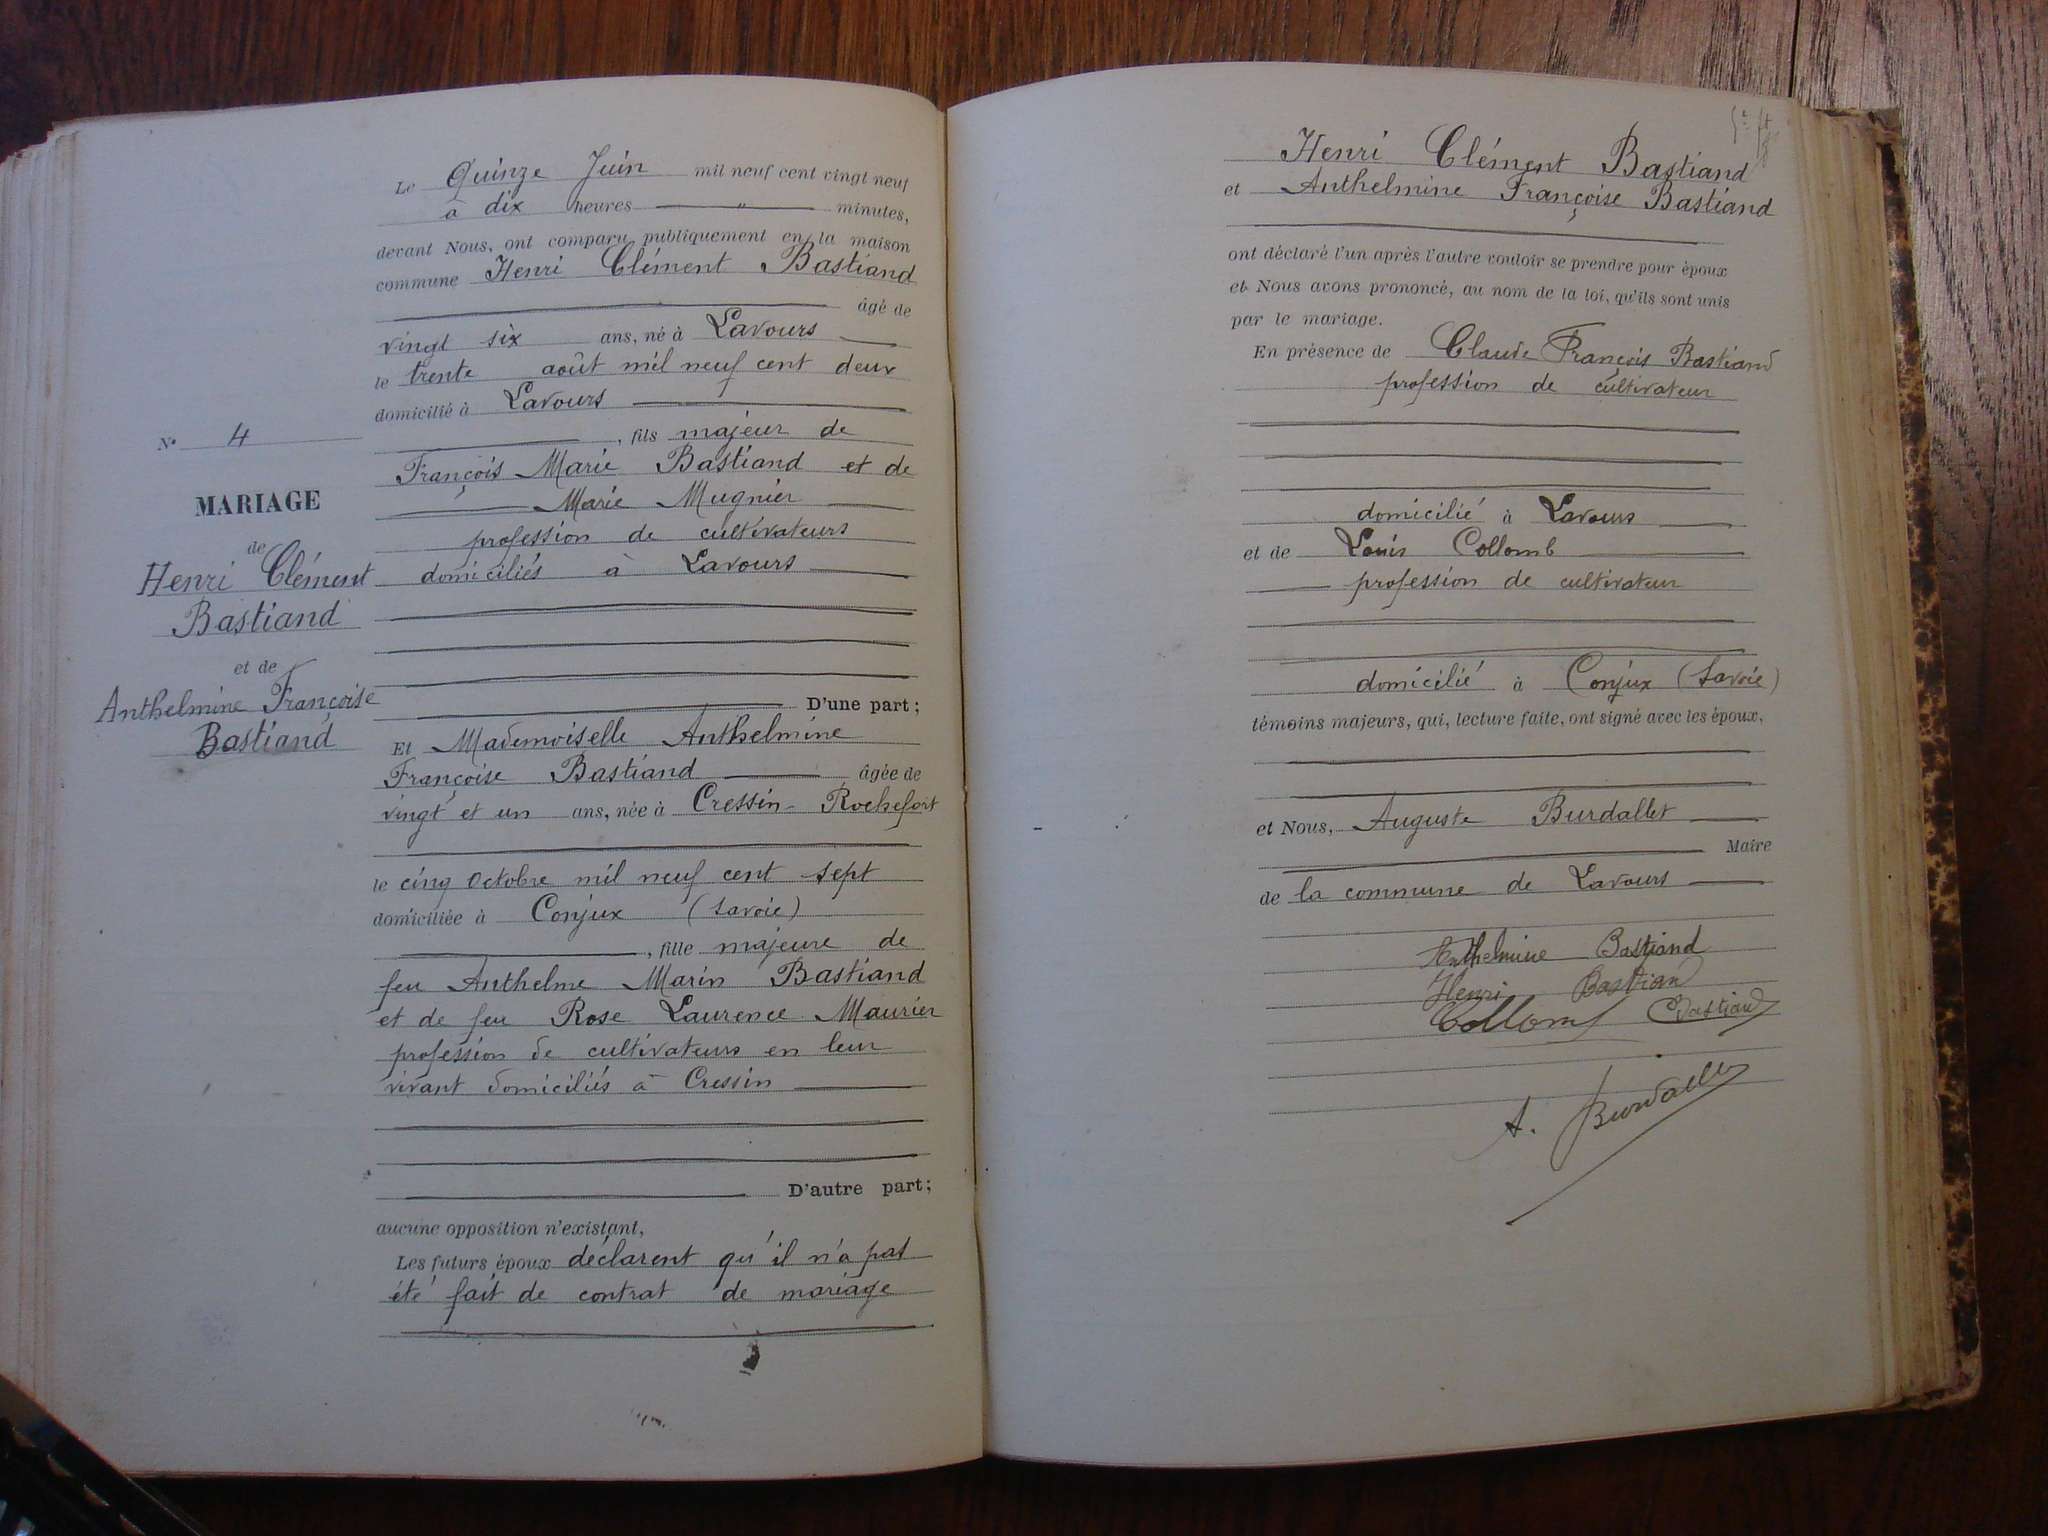 N° 4
MARIAGE
de
Henri Clément
Bastiand
et de
Anthelmine Françoise
Bastiand
Le Quinze Juin mil neuf cent vingt neuf
à dix heures " minutes,
devant Nous, ont comparu publiquement en la maison
commune Henri Clément Bastiand
âgé de
vingt six ans, né à Lavours
le trente août mil neuf cent deux
domicilié à Lavours
, fils majeur de
François Marie Bastiand et de
Marie Mugnier
profession de cultivateurs
domiciliés à Lavours
D'une part;
Et Mademoiselle Anthelmine
Françoise Bastiand âgée de
vingt et un ans, née à Cressin-Rochefort
le cinq octobre mil neuf cent sept
domiciliée à Conjux (Savoie)
, fille majeure de
feu Anthelme Marin Bastiand
et de feu Rose Laurence Maurier
profession de cultivateurs en leur
vivant domiciliés à Cressin
D'autre part;
aucune opposition n'existant,
Les futurs époux déclarent qu'il n'a pas
été fait de contrat de mariage
Henri Clément Bastiand
et Anthelmine Françoise Bastiand
ont déclaré l'un après l'autre vouloir se prendre pour époux
et Nous avons prononcé, au nom de la loi, qu'ils sont unis
par le mariage.
En présence de Claude François Bastiand
profession de cultivateur
domicilié à Lavours
et de Louis Collomb
profession de cultivateur
domicilié à Conjux (Savoie)
témoins majeurs, qui, lecture faite, ont signé avec les époux,
et Nous, Auguste Burdallet
Maire
de la commune de Lavours
Anthelmine Bastiand
Henri Bastiand
Collomb Bastiand
A. Burdallet